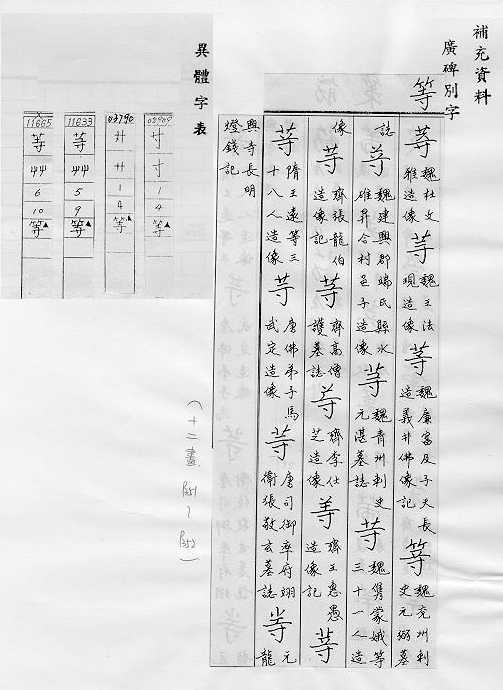 補充資料
廣碑別字
等
䓁 魏杜文雅造像 䓁 魏王法現造像 䓁 魏廉富及子天長造義井佛像記 等 魏兗州刺史元弼墓
誌 魏建興郡端氏縣水碓昇合村邑子造像 䓁 魏青州刺史元湛墓誌 䓁 魏雋蒙娥等三十一人造
像 䓁 齊張龍伯造像記 䓁 齊高僧護墓誌 䓁 齊李仕芝造像 齊王惠愚造像記 䓁
䓁 隋王遠等三十八人造像 䓁 唐佛弟子馬武定造像 䓁 唐司御率府翊衛張敬玄墓誌 元龍
興寺長明燈錢記
異體字表
02909 寸 寸 1 4 等▲
03790 廾 廾 1 4 等▲
11633 䓁 艸 5 9 等▲
11665 䓁 艸 6 10 等▲
(十二畫 P351~P352)